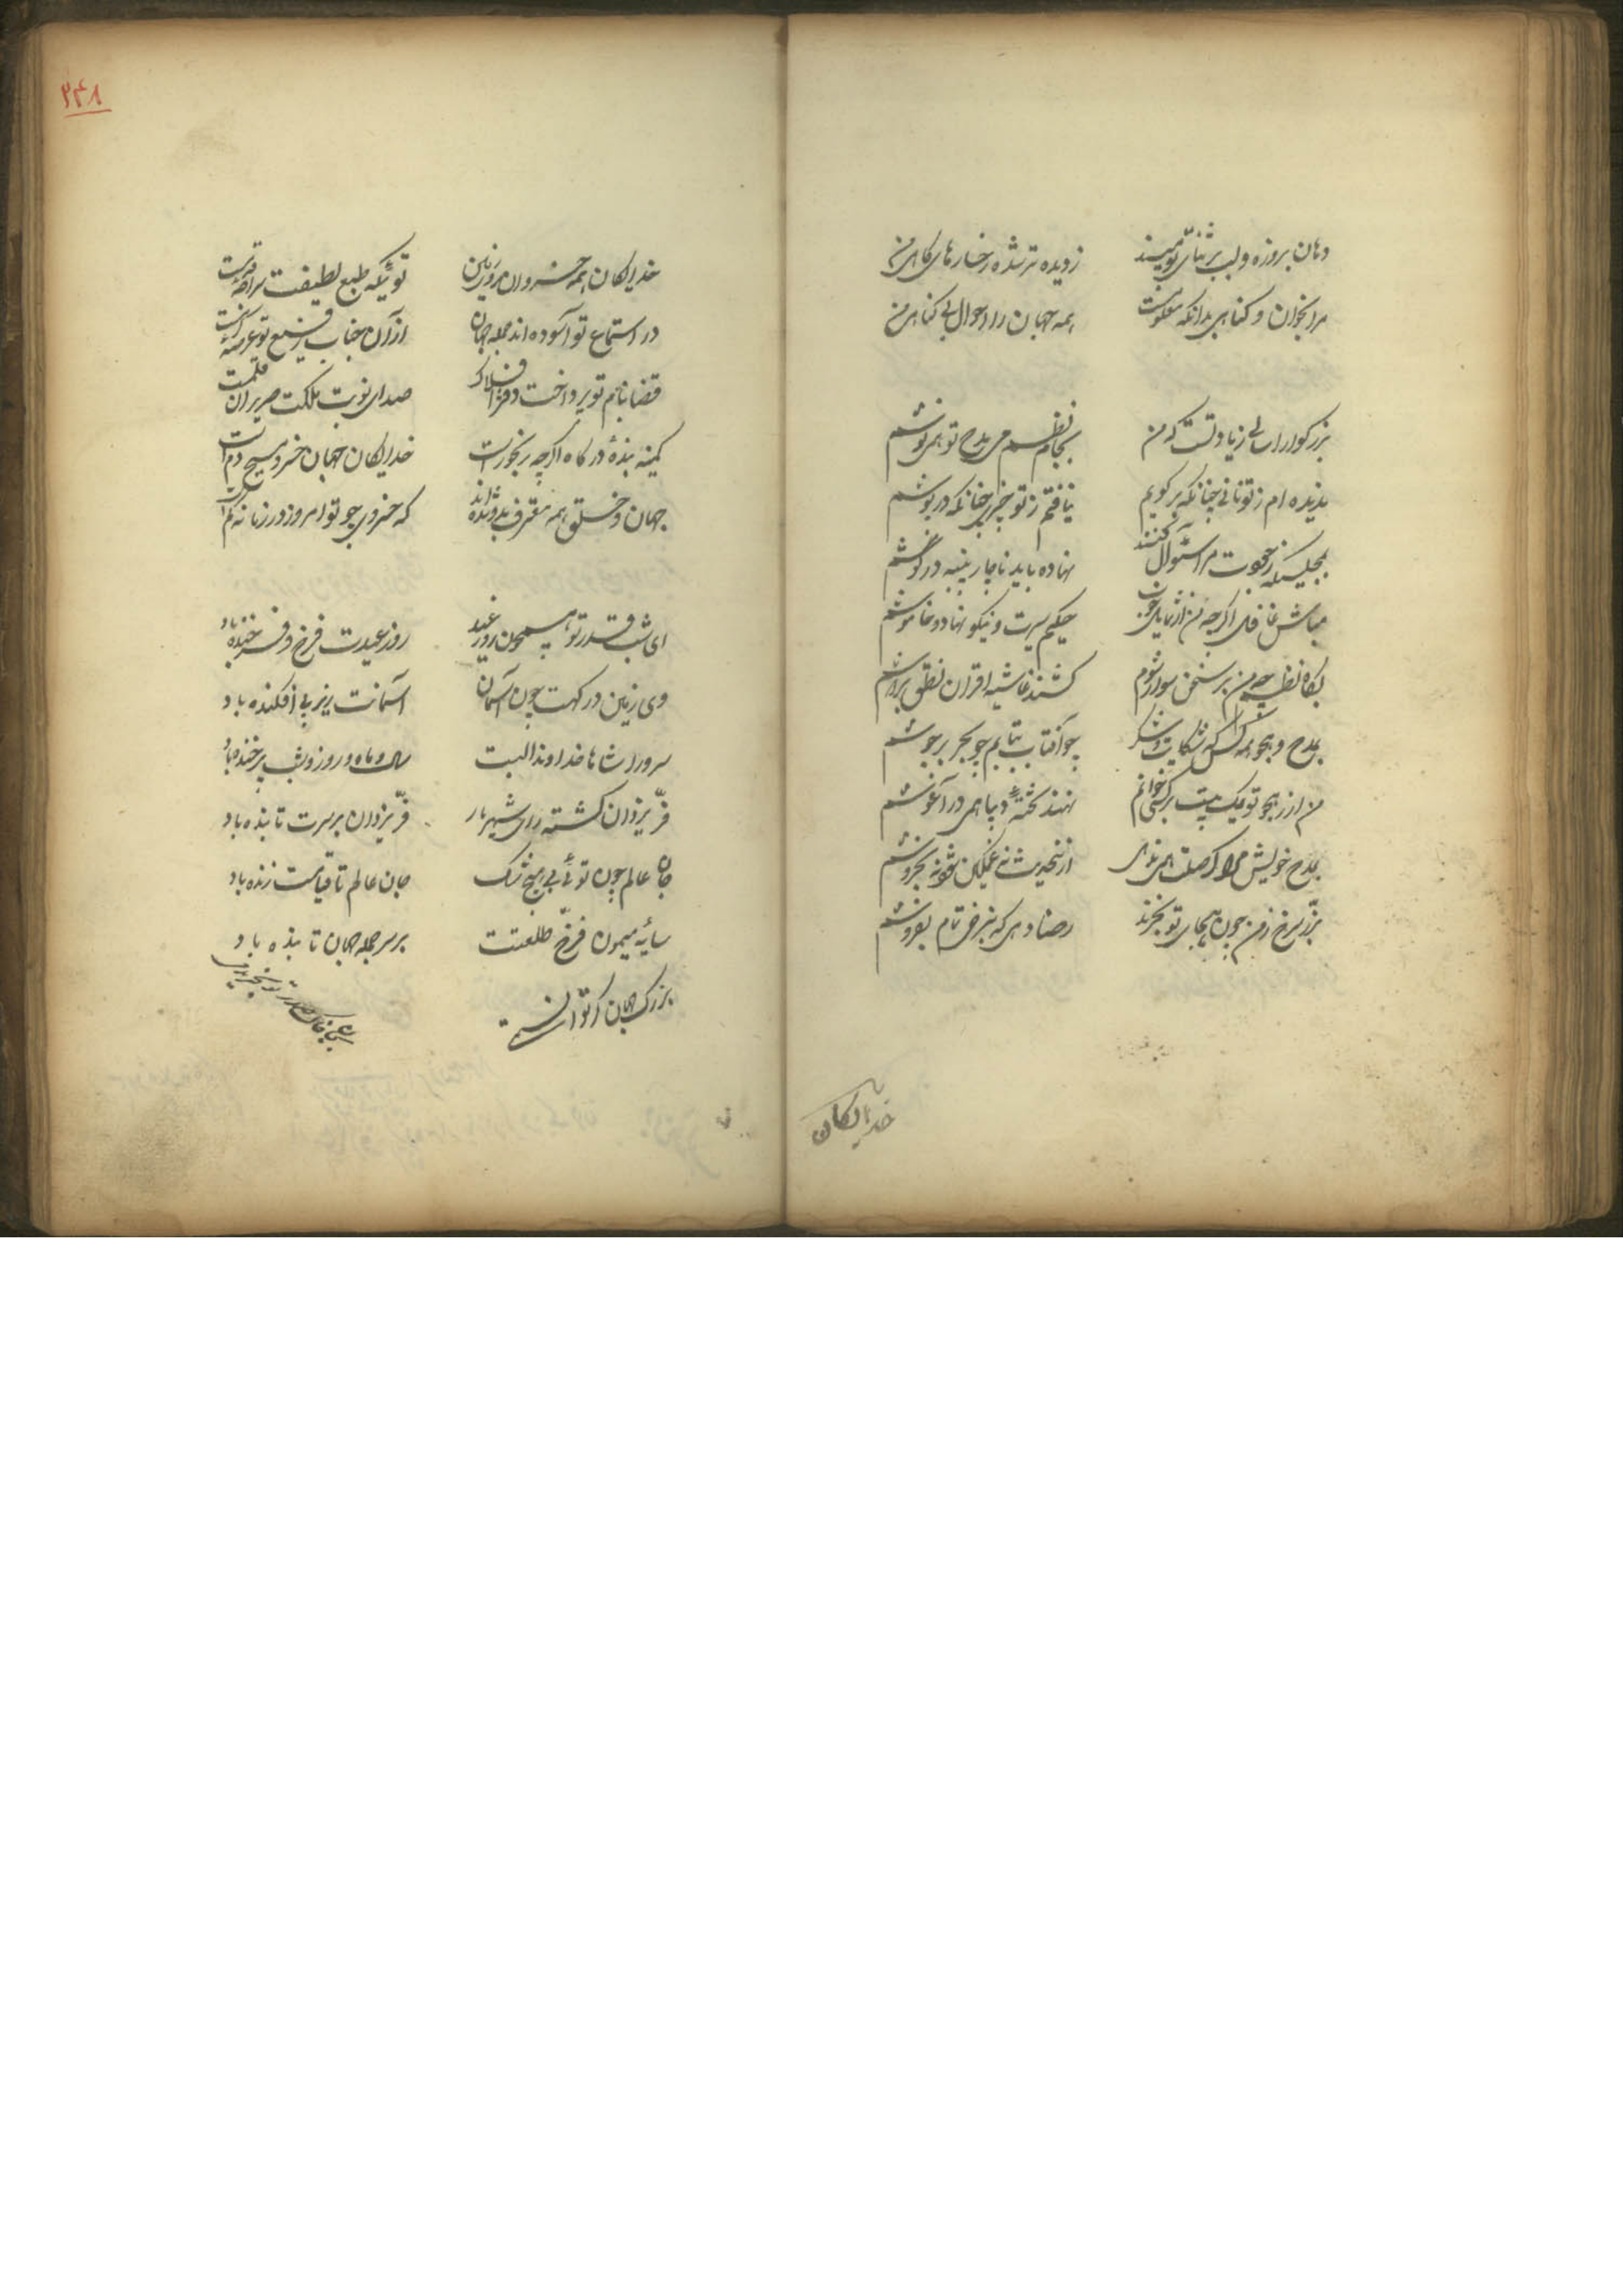 دهان بروزه و لب بر ثنای تو میند زدیده تر شده رخسارهای کاهی من
مرا بخوان و کناهی بدانکه معلومست همه جهان را احوال بی کناهی من
بزرکوارا سالی زیادتست که من بجام نظم می مدح تو همی نوشم
ندیده ام ز تو نانی چنانکه بر کویم نیافتم ز تو چیزی چنانکه در پوشم
بمجلسیکه ز جودت مرا سئوال کنند نهاده باید ناچار پنبه در کوشم
مباش غافل اکرچه من از شمایل خوب حکیم سیرت و نیکو نهاد و خاموشم
بکاه نظم چو من بر سخن سوار شوم کشند غاشیه اقران نطق بر دوشم
بمدح و هجو همه کس که شکایت و شکر چو آفتاب بتابم چو بحر بر جوشم
من ار ز هجو تو یک بیت بر کسی خوانم نهند تخته دیبا همی در آغوشم
بمدح خویش مرا کر صلت همی ندهی ازین حدیث نه غمکین شوم نه بخروشم
بزر سرخ ز من چون هجای تو بخرند رضا دهی که بنرخی تمام بفروشم
خدایکان
۲۴۸
خدایکان همه خسروان روی زمین توئیکه طبع لطیفت
در استماع تو آسوده اند جمله جهان از آن جناب رفیع تو
قضا بنام تو پرداخت دفتر افلاک صدای نوبت ملکت صریر آن قلمست
کمینه بندهٔ درکاه اکرچه رنجورست خدایکان جهان خسرو مسیح دم است
جهان و خلق همه معترف بدو شده اند که خسروی چو تو امروز در زمانه کم است
ای شب قدر تو همچون روز عید روز عیدت فرخ و فرخنده باد
وی زمین درکهت چون آسمان آسمانت زیر پی افکنده باد
سرورا شاها خداوندا البت سال و ماه و روز و شب پر خنده باد
فرّ یزدان کشته رای شهریار فرّ یزدان بر سرت تابنده باد
جان عالم چون توئی بی هیچ شک جان عالم تا قیامت زنده باد
سایهٔ میمون فرخ طلعتت بر سر جمله جهان تابنده باد
بزرک جهان کر توانستمی